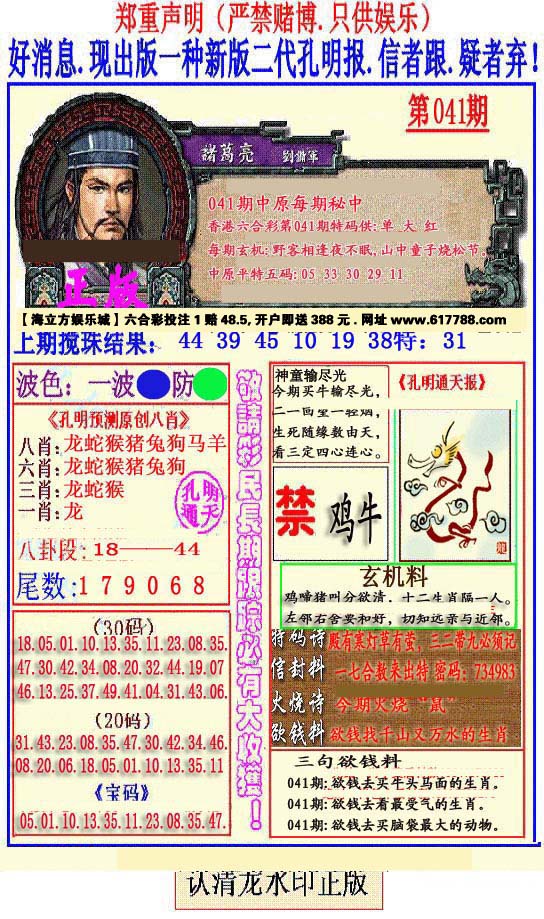 郑重声明（严禁赌博.只供娱乐）
好消息.现出版一种新版二代孔明报.信者跟.疑者弃!
第041期
諸葛亮 劉備軍
041期中原每期秘中
香港六合彩第041期特码供:单 大 红
每期玄机:野客相逢夜不眠,山中童子烧松节。
中原平特五码:05 33 30 29 11
正版
【海立方娱乐城】六合彩投注1赔48.5,开户即送388元.网址www.617788.com
上期搅珠结果: 44 39 45 10 19 38特: 31
波色: 一波 防
《孔明预测原创八肖》
八肖:龙蛇猴猪兔狗马羊
六肖:龙蛇猴猪兔狗
三肖:龙蛇猴
一肖:龙
孔明
通天
八卦段:18——44
尾数:179068
(30码)
18.05.01.10.13.35.11.23.08.35.
47.30.42.34.08.20.32.44.19.07
46.13.25.37.49.41.04.31.43.06.
(20码)
31.43.23.08.35.47.30.42.34.46.
08.20.06.18.05.01.10.13.35.11
《宝码》
05.01.10.13.35.11.23.08.35.47.
敬請彩民長期跟踪必有大收獲！
神童输尽光
今期买牛输尽光,
生死随缘数由天,
看三定四心连心。
《孔明通天报》
禁 鸡牛
玄机料
鸡啼猪叫分欲清，十二生肖隔一人。
左邻右舍要和好，切知远亲与近邻。
特码诗 殿有寒灯草有萤，三二带九必须记
信封料 一七合数来出特 密码：734983
火烧诗 今期火烧“鼠”
欲钱料 欲钱找千山又万水的生肖
三句欲钱料
041期:欲钱去买牛头马面的生肖。
041期:欲钱去看最受气的生肖。
041期:欲钱去买脑袋最大的动物。
认清龙水印正版